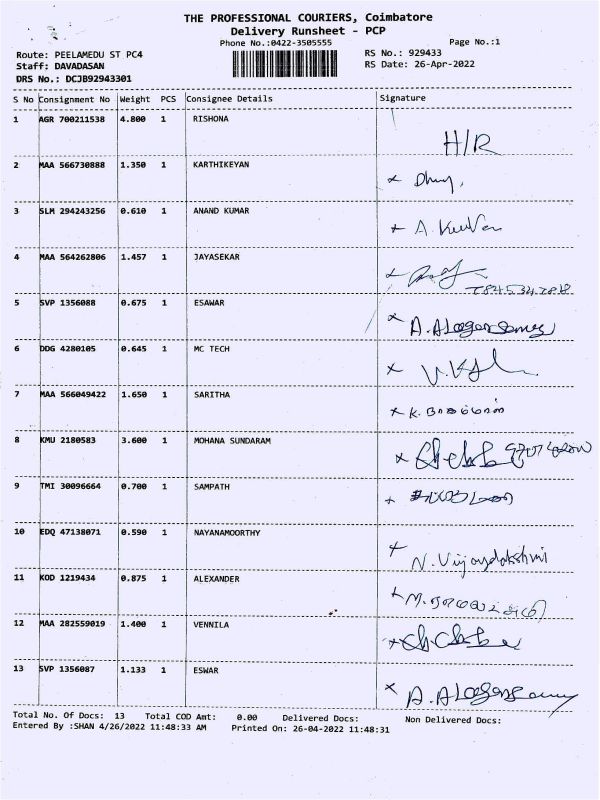 THE PROFESSIONAL COURIERS, Coimbatore
Delivery Runsheet - PCP
Phone No.:0422-3505555 Page No.:1
Route: PEELAMEDU ST PC4 RS No.: 929433
Staff: DAVADASAN RS Date: 26-Apr-2022
DRS No.: DCJB92943301
S No Consignment No Weight PCS Consignee Details Signature
1 AGR 700211538 4.800 1 RISHONA H/R
2 MAA 566730888 1.350 1 KARTHIKEYAN
3 SLM 294243256 0.610 1 ANAND KUMAR
4 MAA 564262806 1.457 1 JAYASEKAR
5 SVP 1356088 0.675 1 ESAWAR A. Alagarsamy
6 DDG 4280105 0.645 1 MC TECH
7 MAA 566049422 1.650 1 SARITHA
8 KMU 2180583 3.600 1 MOHANA SUNDARAM
9 TMI 30096664 0.700 1 SAMPATH
10 EDQ 47138071 0.590 1 NAYANAMOORTHY N. Vijayalakshmi
11 KOD 1219434 0.875 1 ALEXANDER
12 MAA 282559019 1.400 1 VENNILA
13 SVP 1356087 1.133 1 ESWAR A. Alagarsamy
Total No. Of Docs: 13 Total COD Amt: 0.00 Delivered Docs: Non Delivered Docs:
Entered By :SHAN 4/26/2022 11:48:33 AM Printed On: 26-04-2022 11:48:31